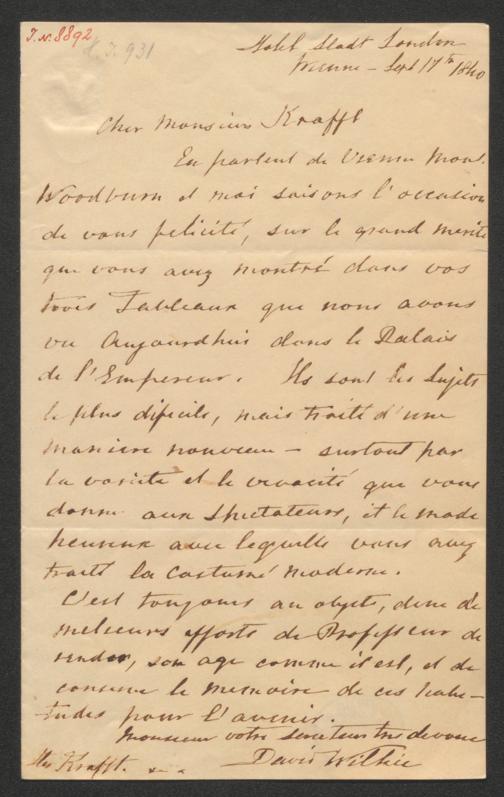 J.N. 8892
H.J. 931
Hotel Stadt London
Vienne - Sept 17th 1840
Cher Monsieur Krafft
En partent de Vienne Mons.
Woodburn et moi saisons l'occasion
de vous felicité, sur le grand merite
que vous avez montré dans vos
trois Tableaux que nous avons
vu Aujourdhui dans le Palais
de l'Empereur. Ils sont les Sujets
le plus dificile, mais traité d'une
maniere nouveau - surtout par
la varieté et le vivacité que vous
donne aux Spectateurs, et le mode
heureux avec lequelle vous avez
traité la Costumé moderne.
C'est toujours an objets, dine de
melieurs efforts de Professeur de
render, son age comme il est, et de
conserve le memoire de ces habe-
tudes pour l'avenir.
Monsieur votre serviteur tres devoué
David Wilkie
Mr Krafft.